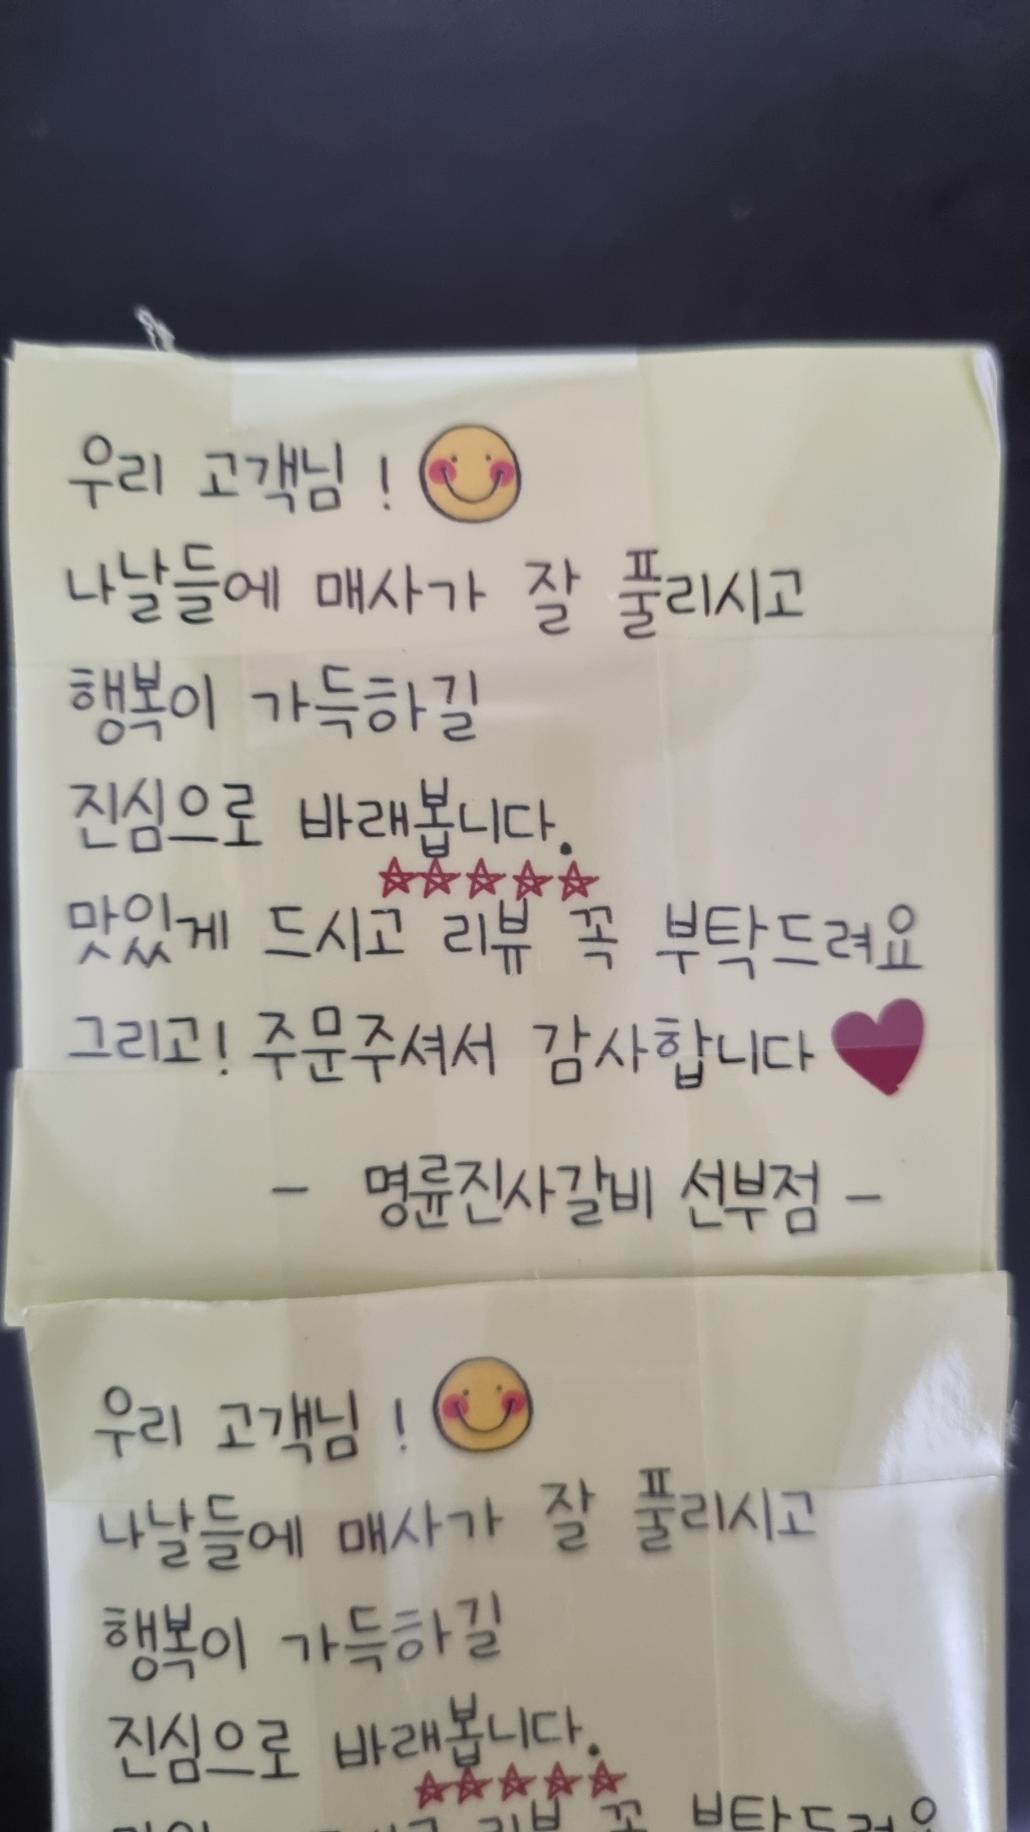 우리 고객님 !
나날들에 매사가 잘 풀리시고
행복이 가득하길
진심으로 바래봅니다.
☆☆☆☆☆
맛있게 드시고 리뷰 꼭 부탁드려요
그리고! 주문주셔서 감사합니다
- 명륜진사갈비 선부점 -
우리 고객님 !
나날들에 매사가 잘 풀리시고
행복이 가득하길
진심으로 바래봅니다.
☆☆☆☆☆
리뷰 꼭 부탁드려요